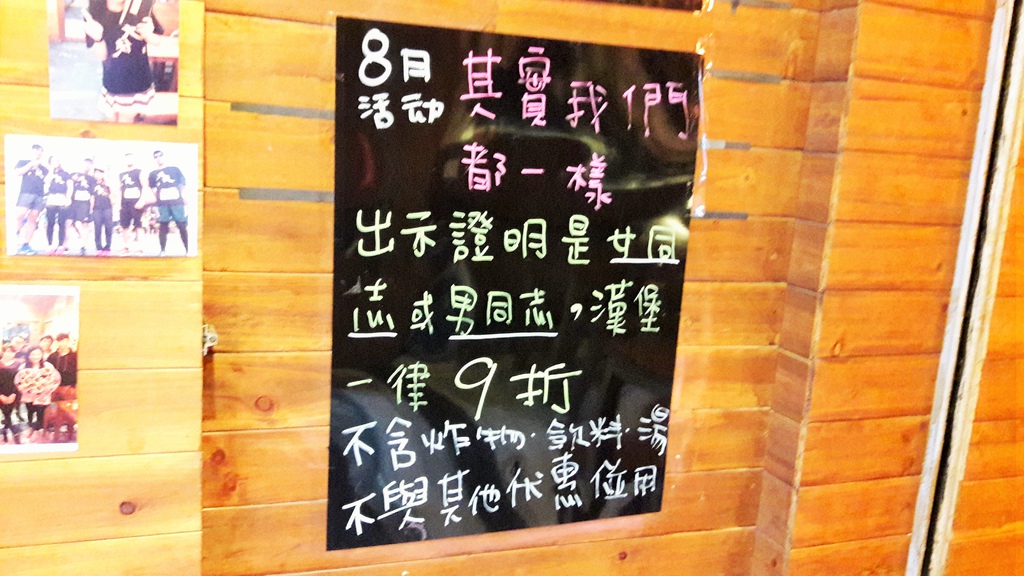 8月
活动
其實我們
都一樣
出示證明是女同
志或男同志,漢堡
一律9折
不含炸物.飲料.湯
不與其他优惠併用